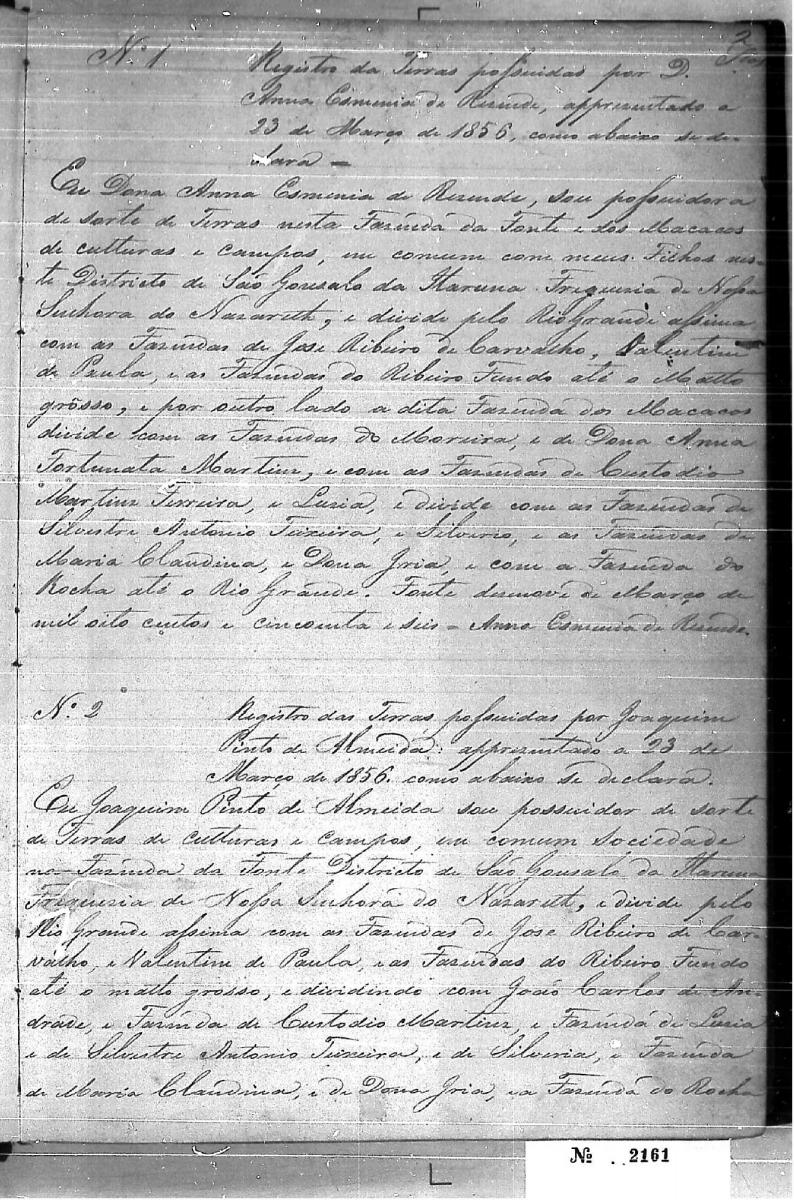 2
Nº 1 Registro da Terras possuidas por D.
Anna Esmenia de Rezende, appresentado a
23 de Março de 1856, como abaixo se de-
clara =
Eu Dona Anna Esmenia de Rezende, sou possuidora
de sorte de Terras nesta Fazenda da Fonte e dos Macacos
de culturas e campos, em comum com meus Filhos nes-
te Districto de São Gonsalo da Ibaruna Freguezia de Nossa
Senhora do Nazareth; e divide pelo Rio Grande assima
com as Fazendas de Jose Ribeiro de Carvalho, Valentim
de Paula, e as Fazendas do Ribeiro Fundo até o Matto
grosso, e por outro lado a dita Fazenda dos Macacos
divide com as Fazendas do Moreira, e de Dona Anna
Fortunata Martinz, e com as Fazendas de Custodio
Martinz Ferreira, e Luzia, e divide com as Fazendas de
Silvestre Antonio Teixeira, e Silverio, e as Fazendas de
Maria Claudina, e Dona Iria, e com a Fazenda do
Rocha até o Rio Grande. Fonte desenove de Março de
mil oito centos e cincoenta e seis = Anna Esmenia de Rezende.
Nº 2 Registro das Terras possuidas por Joaquim
Pinto de Almeida: appresentado a 23 de
Março de 1856. como abaixo se declara.
Eu Joaquim Pinto de Almeida sou possuidor de sorte
de Terras de culturas e campos, em comum Sociedade
na Fazenda da Fonte Districto de São Gonsalo da Ibaruna
Freguezia de Nossa Senhora do Nazareth, e divide pelo
Rio Grande assima com as Fazendas de Jose Ribeiro de Car-
valho, e Valentim de Paula, e as Fazendas do Ribeiro Fundo
até o matto grosso, e dividindo com João Carlos de An-
drade, e Fazenda de Custodio Martinz, e Fazenda de Luzia
e de Silvestre Antonio Teixeira, e de Silveria, e Fazenda
de Maria Claudina, e de Dona Iria, e a Fazenda do Rocha
Nº 2161